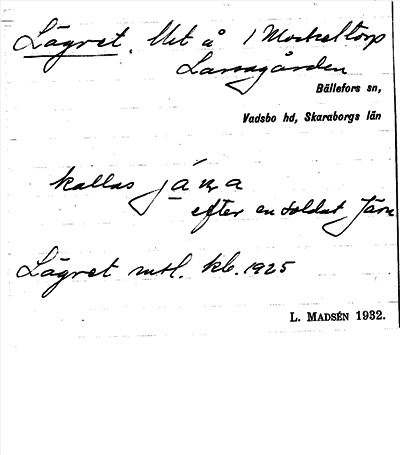 Lägret. Ut å 1 Mockeltorp
Larsagården
Bällefors sn,
Vadsbo hd, Skaraborgs län
kallas
efter en soldat Järn
Lägret mtl. kb. 1925
L. MADSÉN 1932.